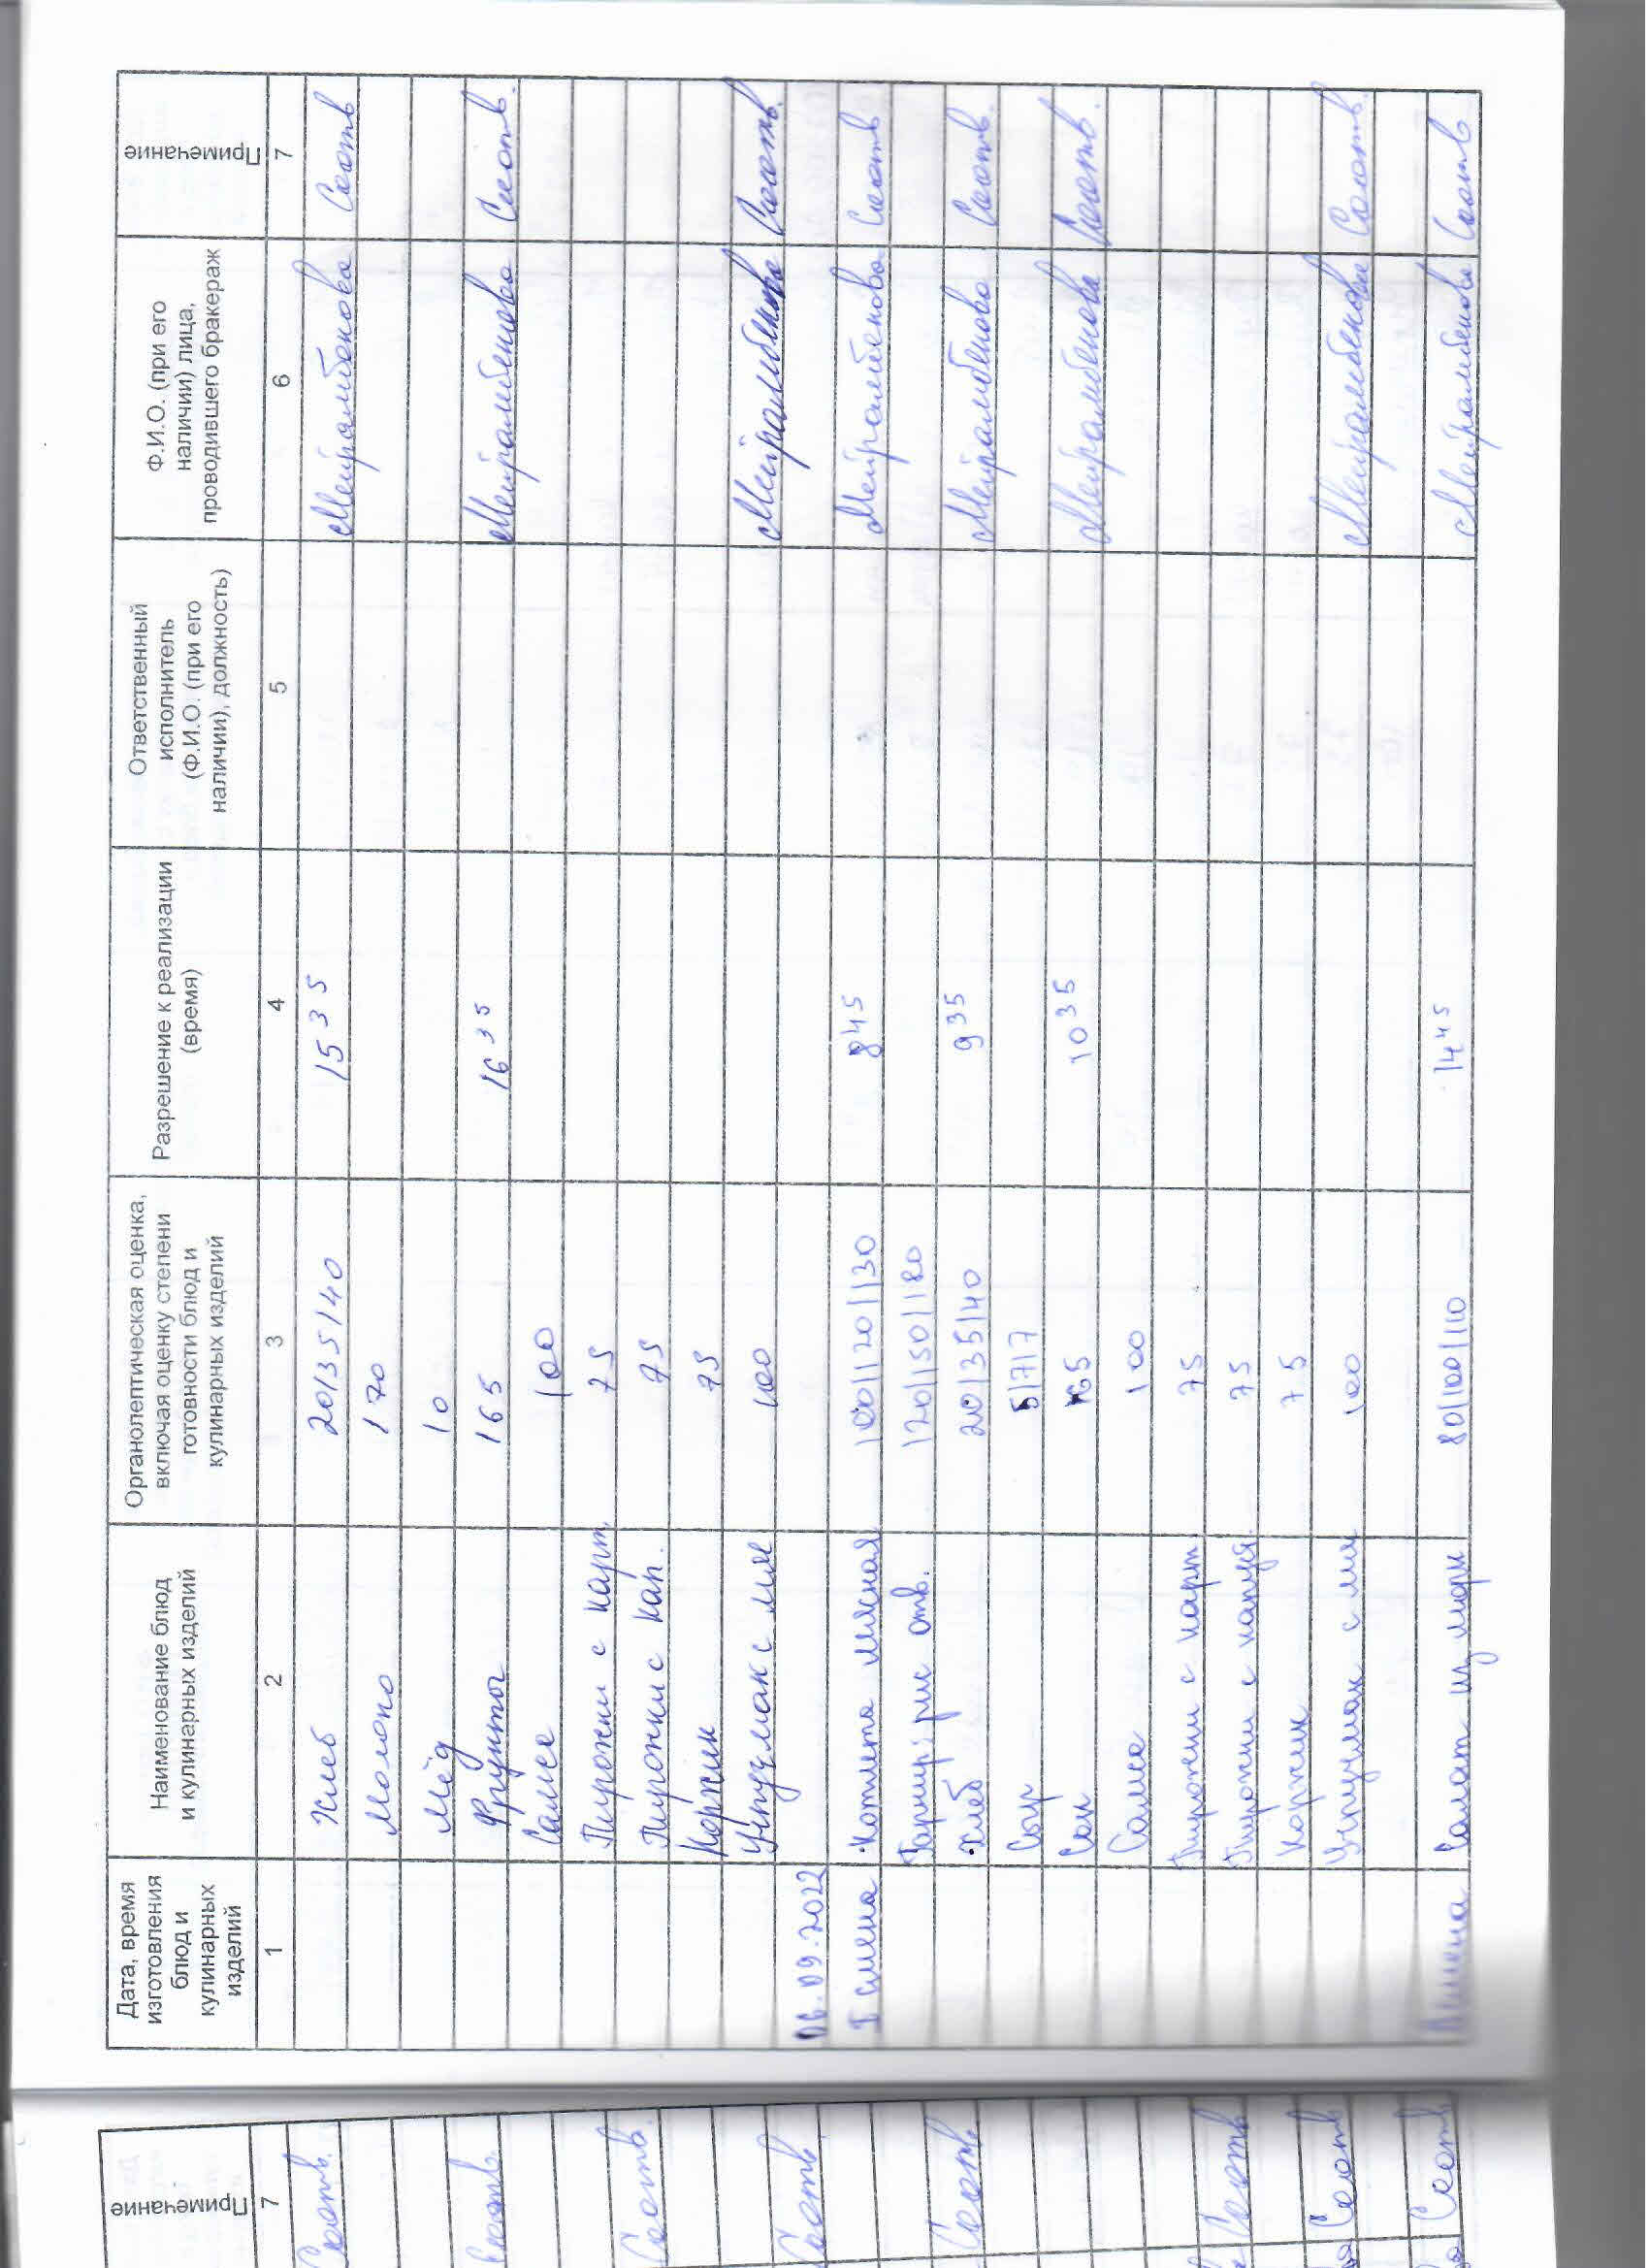 Дата, время изготовления блюд и кулинарных изделий
Наименование блюд и кулинарных изделий
Органолептическая оценка, включая оценку степени готовности блюд и кулинарных изделий
Разрешение к реализации (время)
Ответственный исполнитель (Ф.И.О. (при его наличии), должность)
Ф.И.О. (при его наличии) лица, проводившего бракераж
Примечание
1 2 3 4 5 6 7
Хлеб 20/35/40 15 35 Мейрамбекова Соотв
Молоко 170
Мёд 10
Фрукты 165 16 35 Мейрамбекова Соотв.
Самса 100
Пирожки с карт 75
Пирожки с кап. 75
Коржик 75
Учпучмак с мяс 100 Мейрамбекова Соотв.
06.09.2022
I смена Котлета мясная 100/120/130 8 45 Мейрамбекова Соотв
Гарнир: рис отв. 120/150/180
хлеб 20/35/40 9 35 Мейрамбекова Соотв.
Сыр 5/7/7
Сок 165 10 35 Мейрамбекова Соотв.
Самса 100
Пирожки с карт 75
Пирожки с капуст 75
Коржик 75
Учпучмак с мя 100 Мейрамбекова Соотв.
смена Салат из морк 80/100/110 14 45 Мейрамбекова Соотв
Примечание
7
Соотв.
Соотв.
Соотв.
Соотв.
Соотв
Соотв
Соотв
Соотв